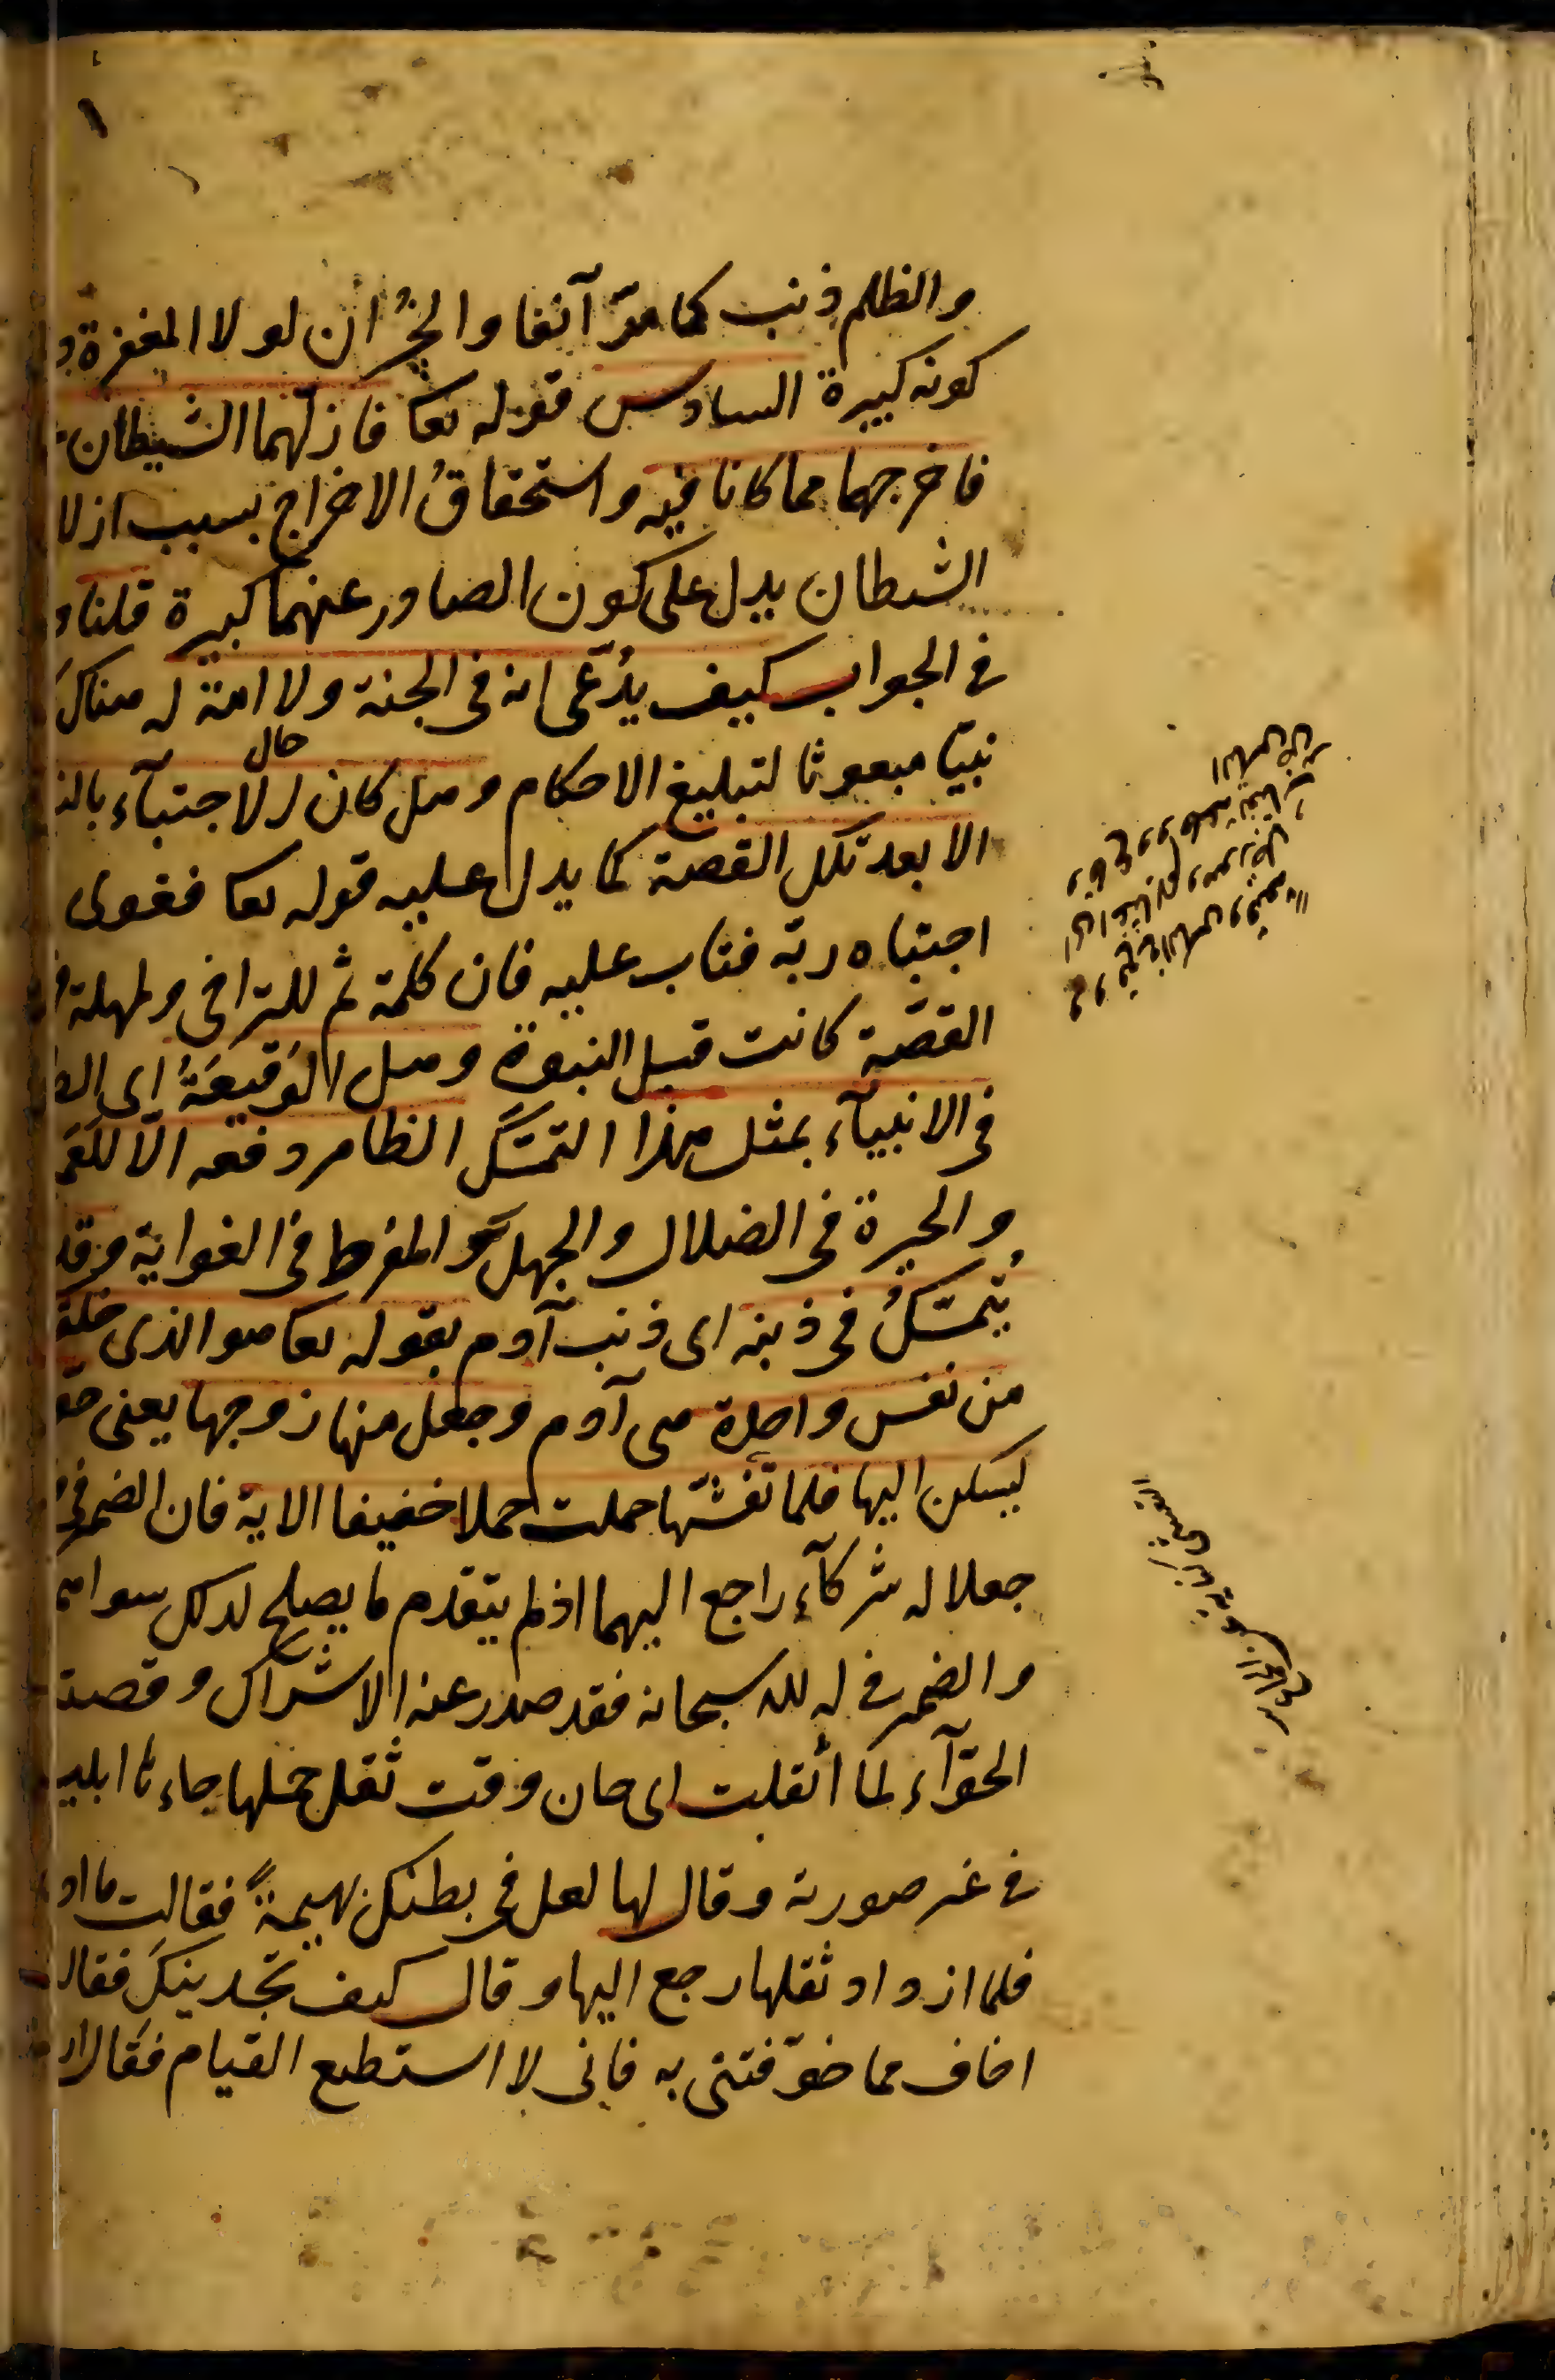 والظلم ذنب كما مر آنفا والخسران لولا المغفرة
كونه كبيرة السادس قوله تعا فازلهما الشيطان
فاخرجهما مما كانا فيه واستحقاق الاخراج بسبب ازلا
الشيطان يدل على كون الصادر عنهما كبيرة قلنا
في الجواب كيف يدعى انه في الجنة ولا امة له هناك
نبيا مبعوثا لتبليغ الاحكام وهل كان حال الاجتبآء
الا بعد تلك القصة كما يدل عليه قوله تعا فغوى
اجتباه ربه فتاب عليه فان كلمة ثم للتراخي والمهلة
القصّة كانت قبل النبوة وهل الوَقيعَةُ اى
في الانبيآء بمثل هذا التمسّك الظاهر دفعه الّا للعَمَ
والحيرة في الضلال والجهل والمفرط في الغواية وقد
يُتمسّكُ في ذنبه اى ذنب آدم بقوله تعا هو الذى خلقكم
من نفس واحدة هى آدم وجعل منها زوجها يعنى حو
ليسكن اليها فلما تغشّٰها حملت حملا خفيفا الاية فان الضمير في
جعلا له شركآء راجع اليهما اذ لم يتقدم ما يصلح لذلك سواهما
والضمير في له لله سبحانه فقد صدر عنه الاشراك وقصة
الحوّآء لمّا أثقلت اى حان وقت ثقل حملها جاءها ابليس
في غير صورته وقال لها لعل في بطنك بهيمةً فقالت ما اد
فلما ازداد ثقلها رجع اليها وقال كيف تجدينك فقال
اخاف مما خوّفتنى به فانى لا استطيع القيام فقال